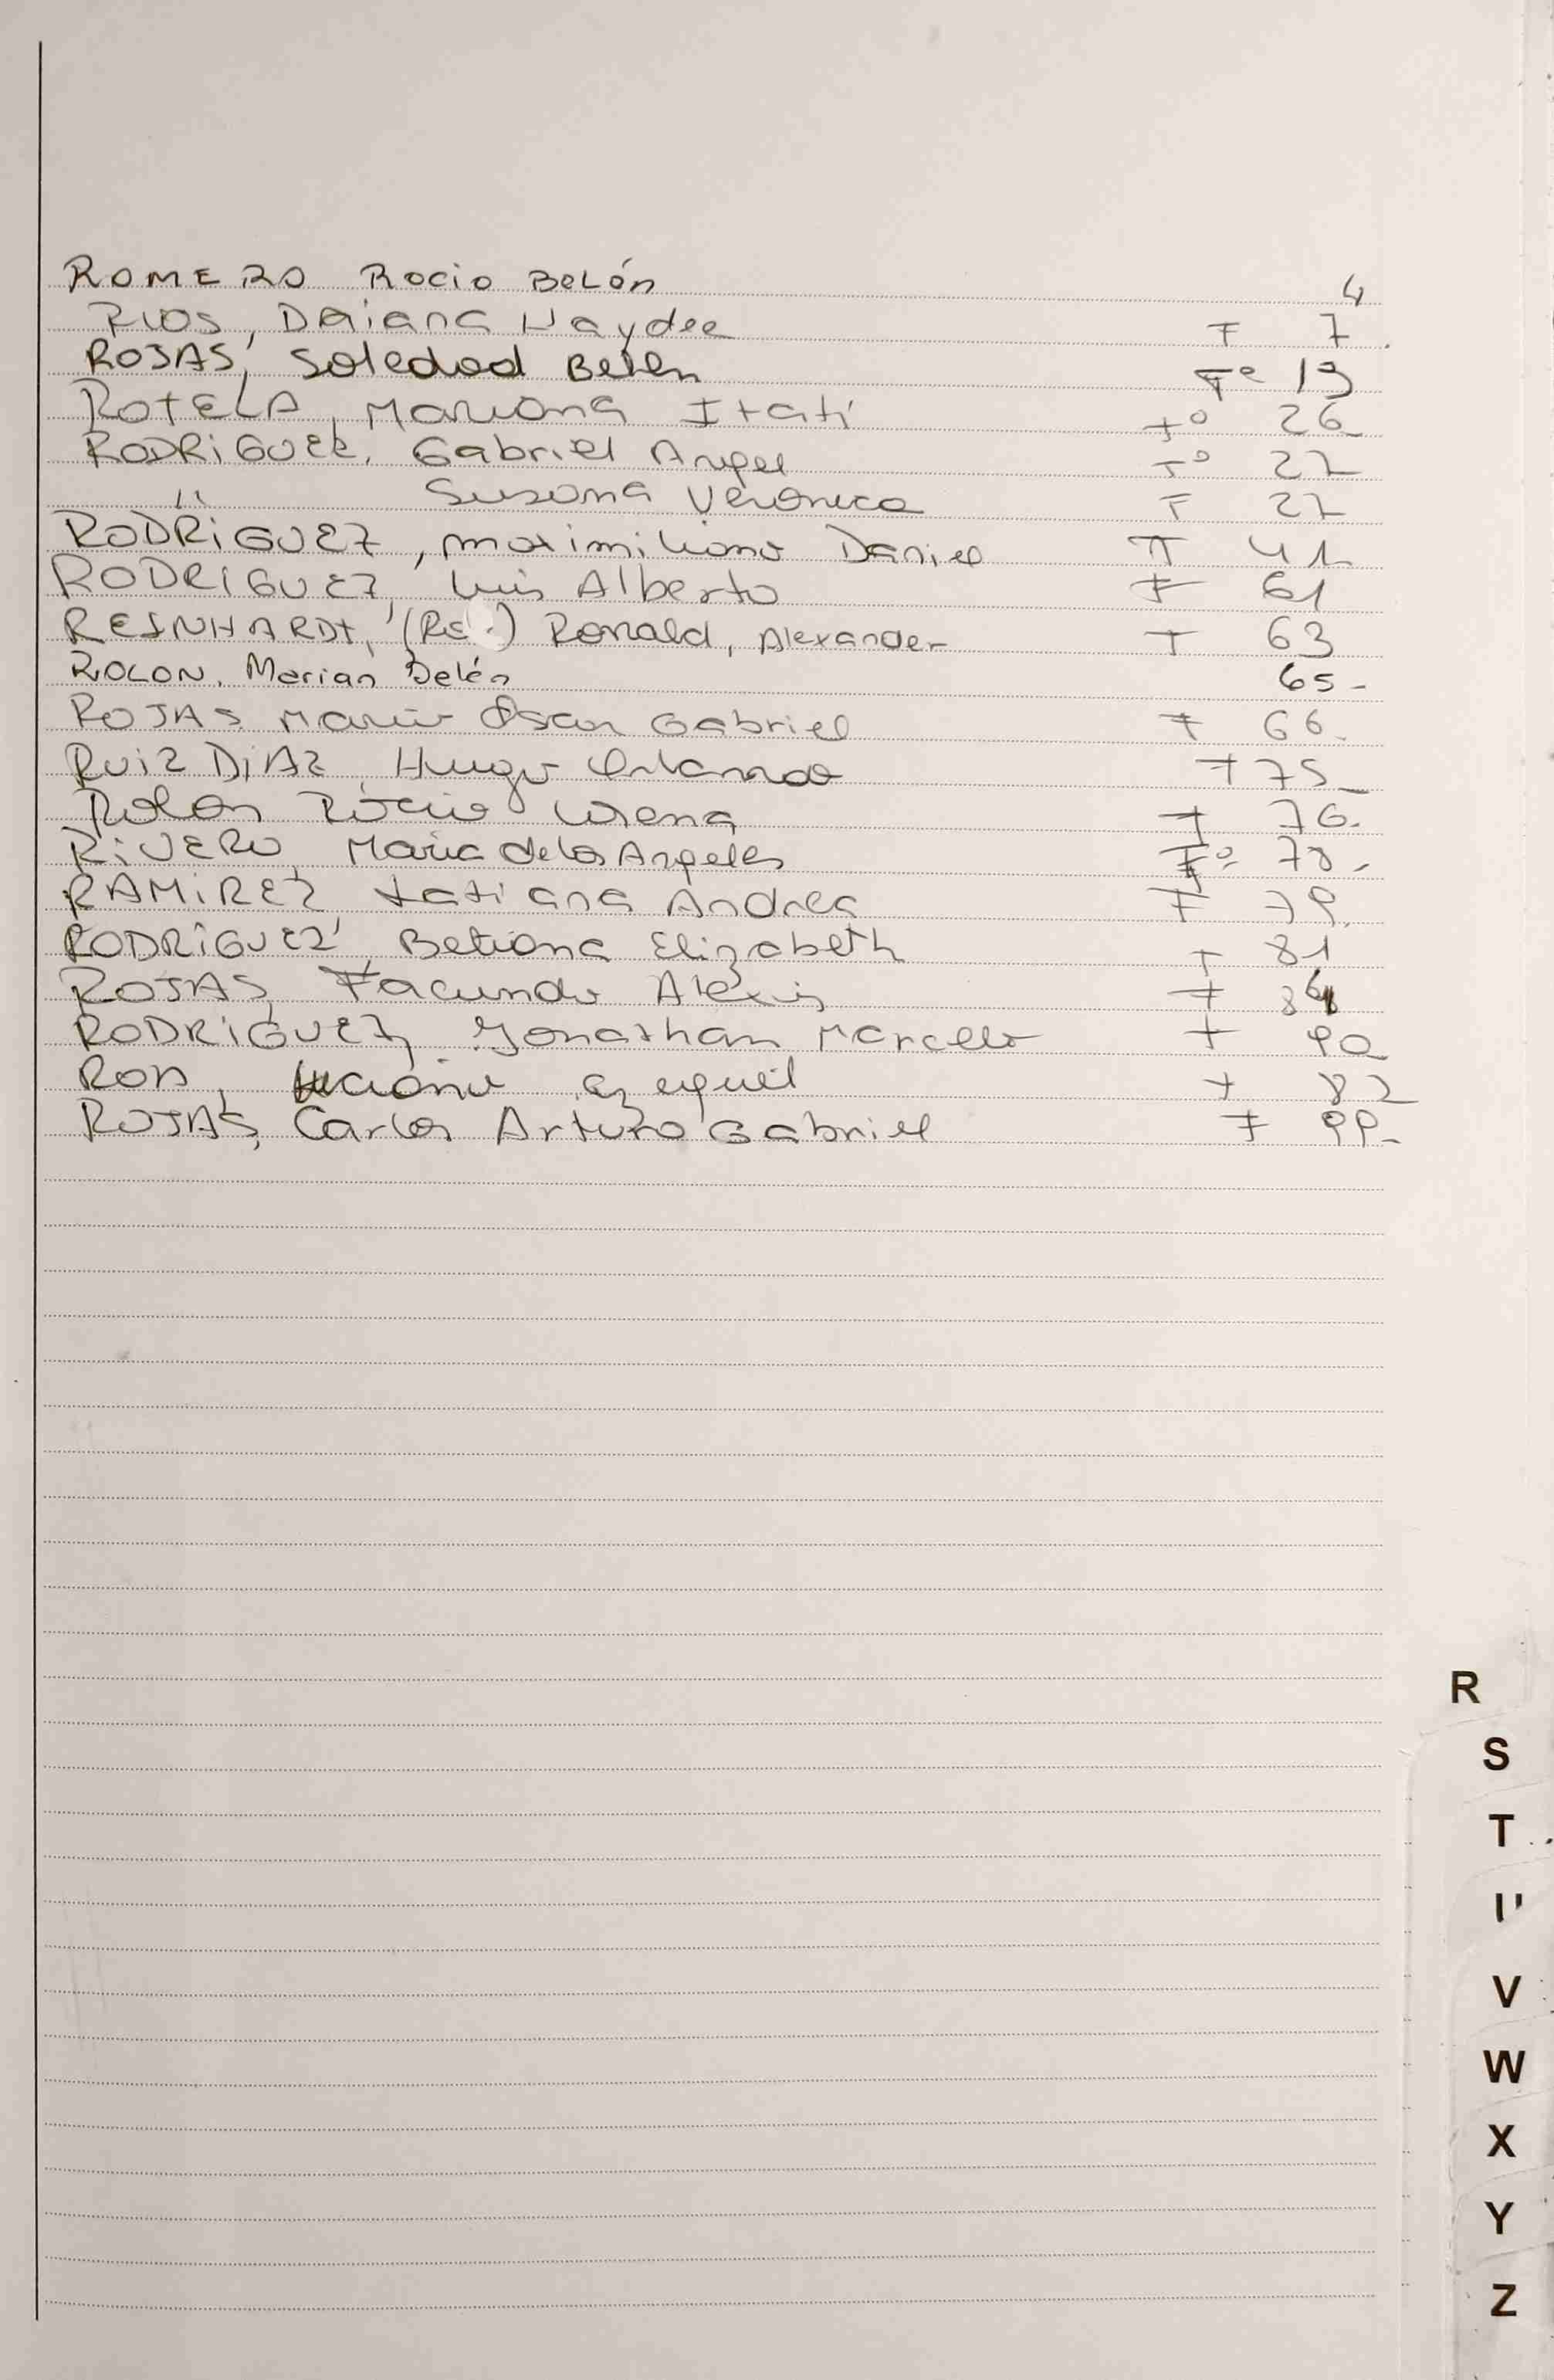 ROMERO Rocio Belén 4
RIOS, Daiana Haydee F 7
ROJAS, Soledad Belen Fº 19
ROTELA, Mariana Itatí Fº 26
RODRIGUEZ, Gabriel Angel Fº 27
" Susana Veronica F 27
RODRIGUEZ, Maximiliano Daniel F 41
RODRIGUEZ, Luis Alberto F 61
REINHARDT, Ronald, Alexander F 63
ROLON, Marian Belén 65-
ROJAS Mario Oscar Gabriel F 66-
RUIZ DIAZ, Hugo Orlando F 75-
Rolon Rocio Lorena F 76-
RIVERO, Maria de los Angeles Fº 78-
RAMIREZ, tatiana Andrea F 79.
RODRIGUEZ, Betiana Elizabeth F 81
ROJAS, Facundo Alexis F
RODRIGUEZ, Jonathan Marcelo F 90
F 82
ROJAS, Carlos Arturo Gabriel F 99-
R
S
T
V
W
X
Y
Z